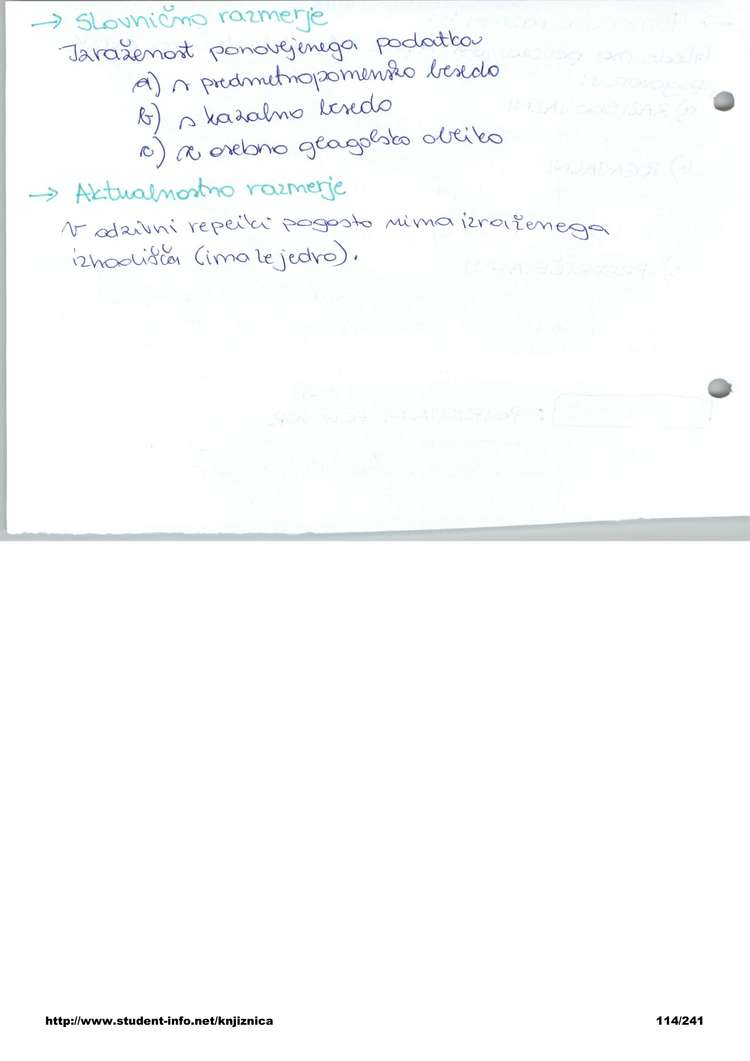 → Slovnično razmerje
Izraženost ponovljenega podatka
a) s predmetnopomensko besedo
b) s kazalno besedo
c) z osebno glagolsko obliko
→ Aktualnostno razmerje
V odzivni repliki pogosto nima izraženega
izhodišča (ima le jedro).
http://www.student-info.net/knjiznica
114/241